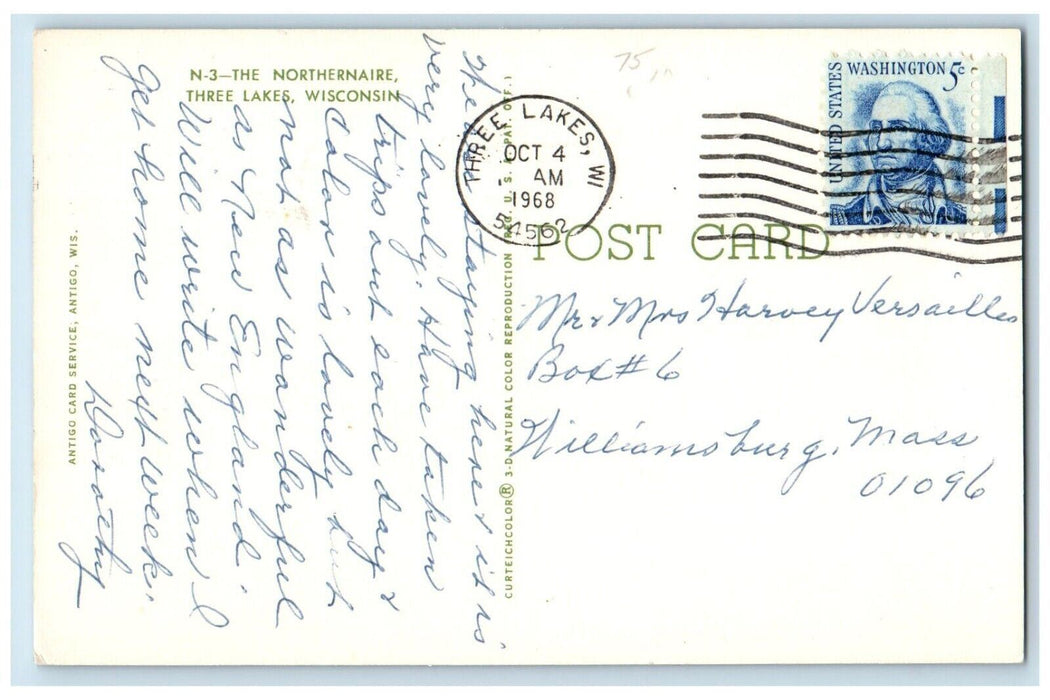 N-3—THE NORTHERNAIRE,
THREE LAKES, WISCONSIN
ANTIGO CARD SERVICE, ANTIGO, WIS.
staying here it is
very lovely. Have taken
trips out each day &
color is lovely but
not as wonderful
as New England
Will write when I
get home next week.
Dorothy
CURTEICHCOLOR® 3-D NATURAL COLOR REPRODUCTION (REG. U. S. A. PAT. OFF.)
75
THREE LAKES, WI
OCT 4
AM
1968
54562
UNITED STATES
WASHINGTON 5c
POST CARD
Mr & Mrs Harvey Versailles
Box #6
Williamsburg, Mass
01096